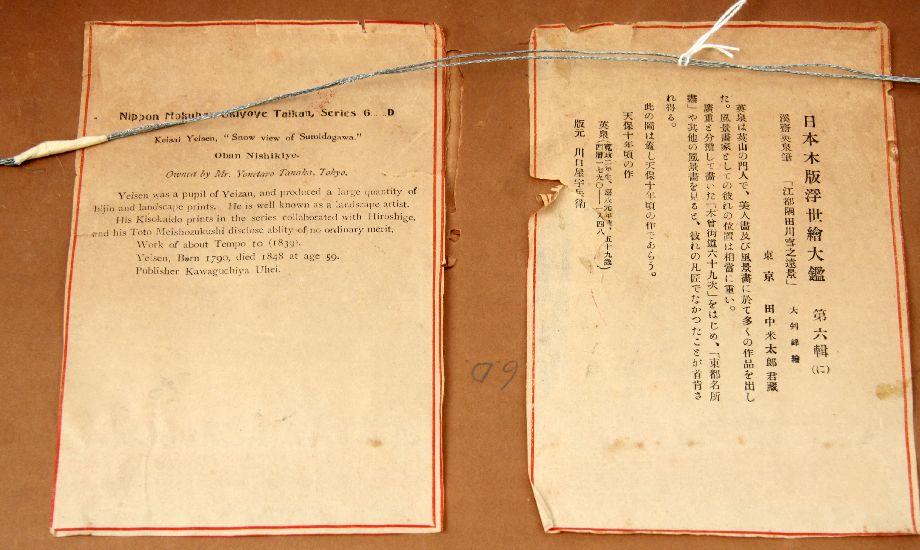 Nippon Mokuhan Ukiyoye Taikan, Series 6 D
Keisai Yeisen, "Snow view of Sumidagawa."
Oban Nishikiye.
Owned by Mr. Yonetaro Tanaka, Tokyo.
Yeisen was a pupil of Yeizan, and produced a large quantity of
bijin and landscape prints. He is well known as a landscape artist.
His Kisokaido prints in the series collaborated with Hiroshige,
and his Toto Meishozukushi disclose ablity of no ordinary merit.
Work of about Tempo 10 (1839).
Yeisen, Børn 1790, died 1848 at age 59.
Publisher Kawaguchiya Uhei.
日本木版浮世繪大鑑 第六輯(に)
溪齋英泉筆 「江都隅田川雪之遠景」 大判錦繪
東京 田中米太郎君藏
英泉は英山の門人で、美人畵及び風景畵に於て多くの作品を出し
た。風景畵家としての彼れの位置は相當に重い。
廣重と分擔して畵いた「木曾街道六十九次」をはじめ、「東都名所
盡」や其他の風景畵を見ると、彼れの凡匠でなかつたことが首肯さ
れ得る。
此の圖は蓋し天保十年頃の作であらう。
天保十年頃の作
英泉(寬政二年生、嘉永元年歿、五十九歲)
(西曆一七九〇—一八四八)
版元 川口屋宇兵衛
60